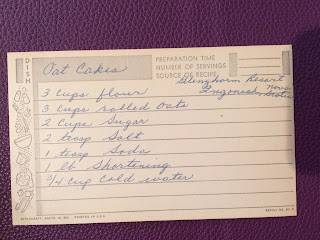 DISH
Oat Cakes
PREPARATION TIME
NUMBER OF SERVINGS
SOURCE OF RECIPE
Glenghorm Resort
Ingonish, Nova Scotia
3 cups flour
3 cups rolled oats
2 cups Sugar
2 teasp Salt
1 teasp Soda
1 lb Shortening
3/4 cup cold water
PRINTED IN U.S.A.